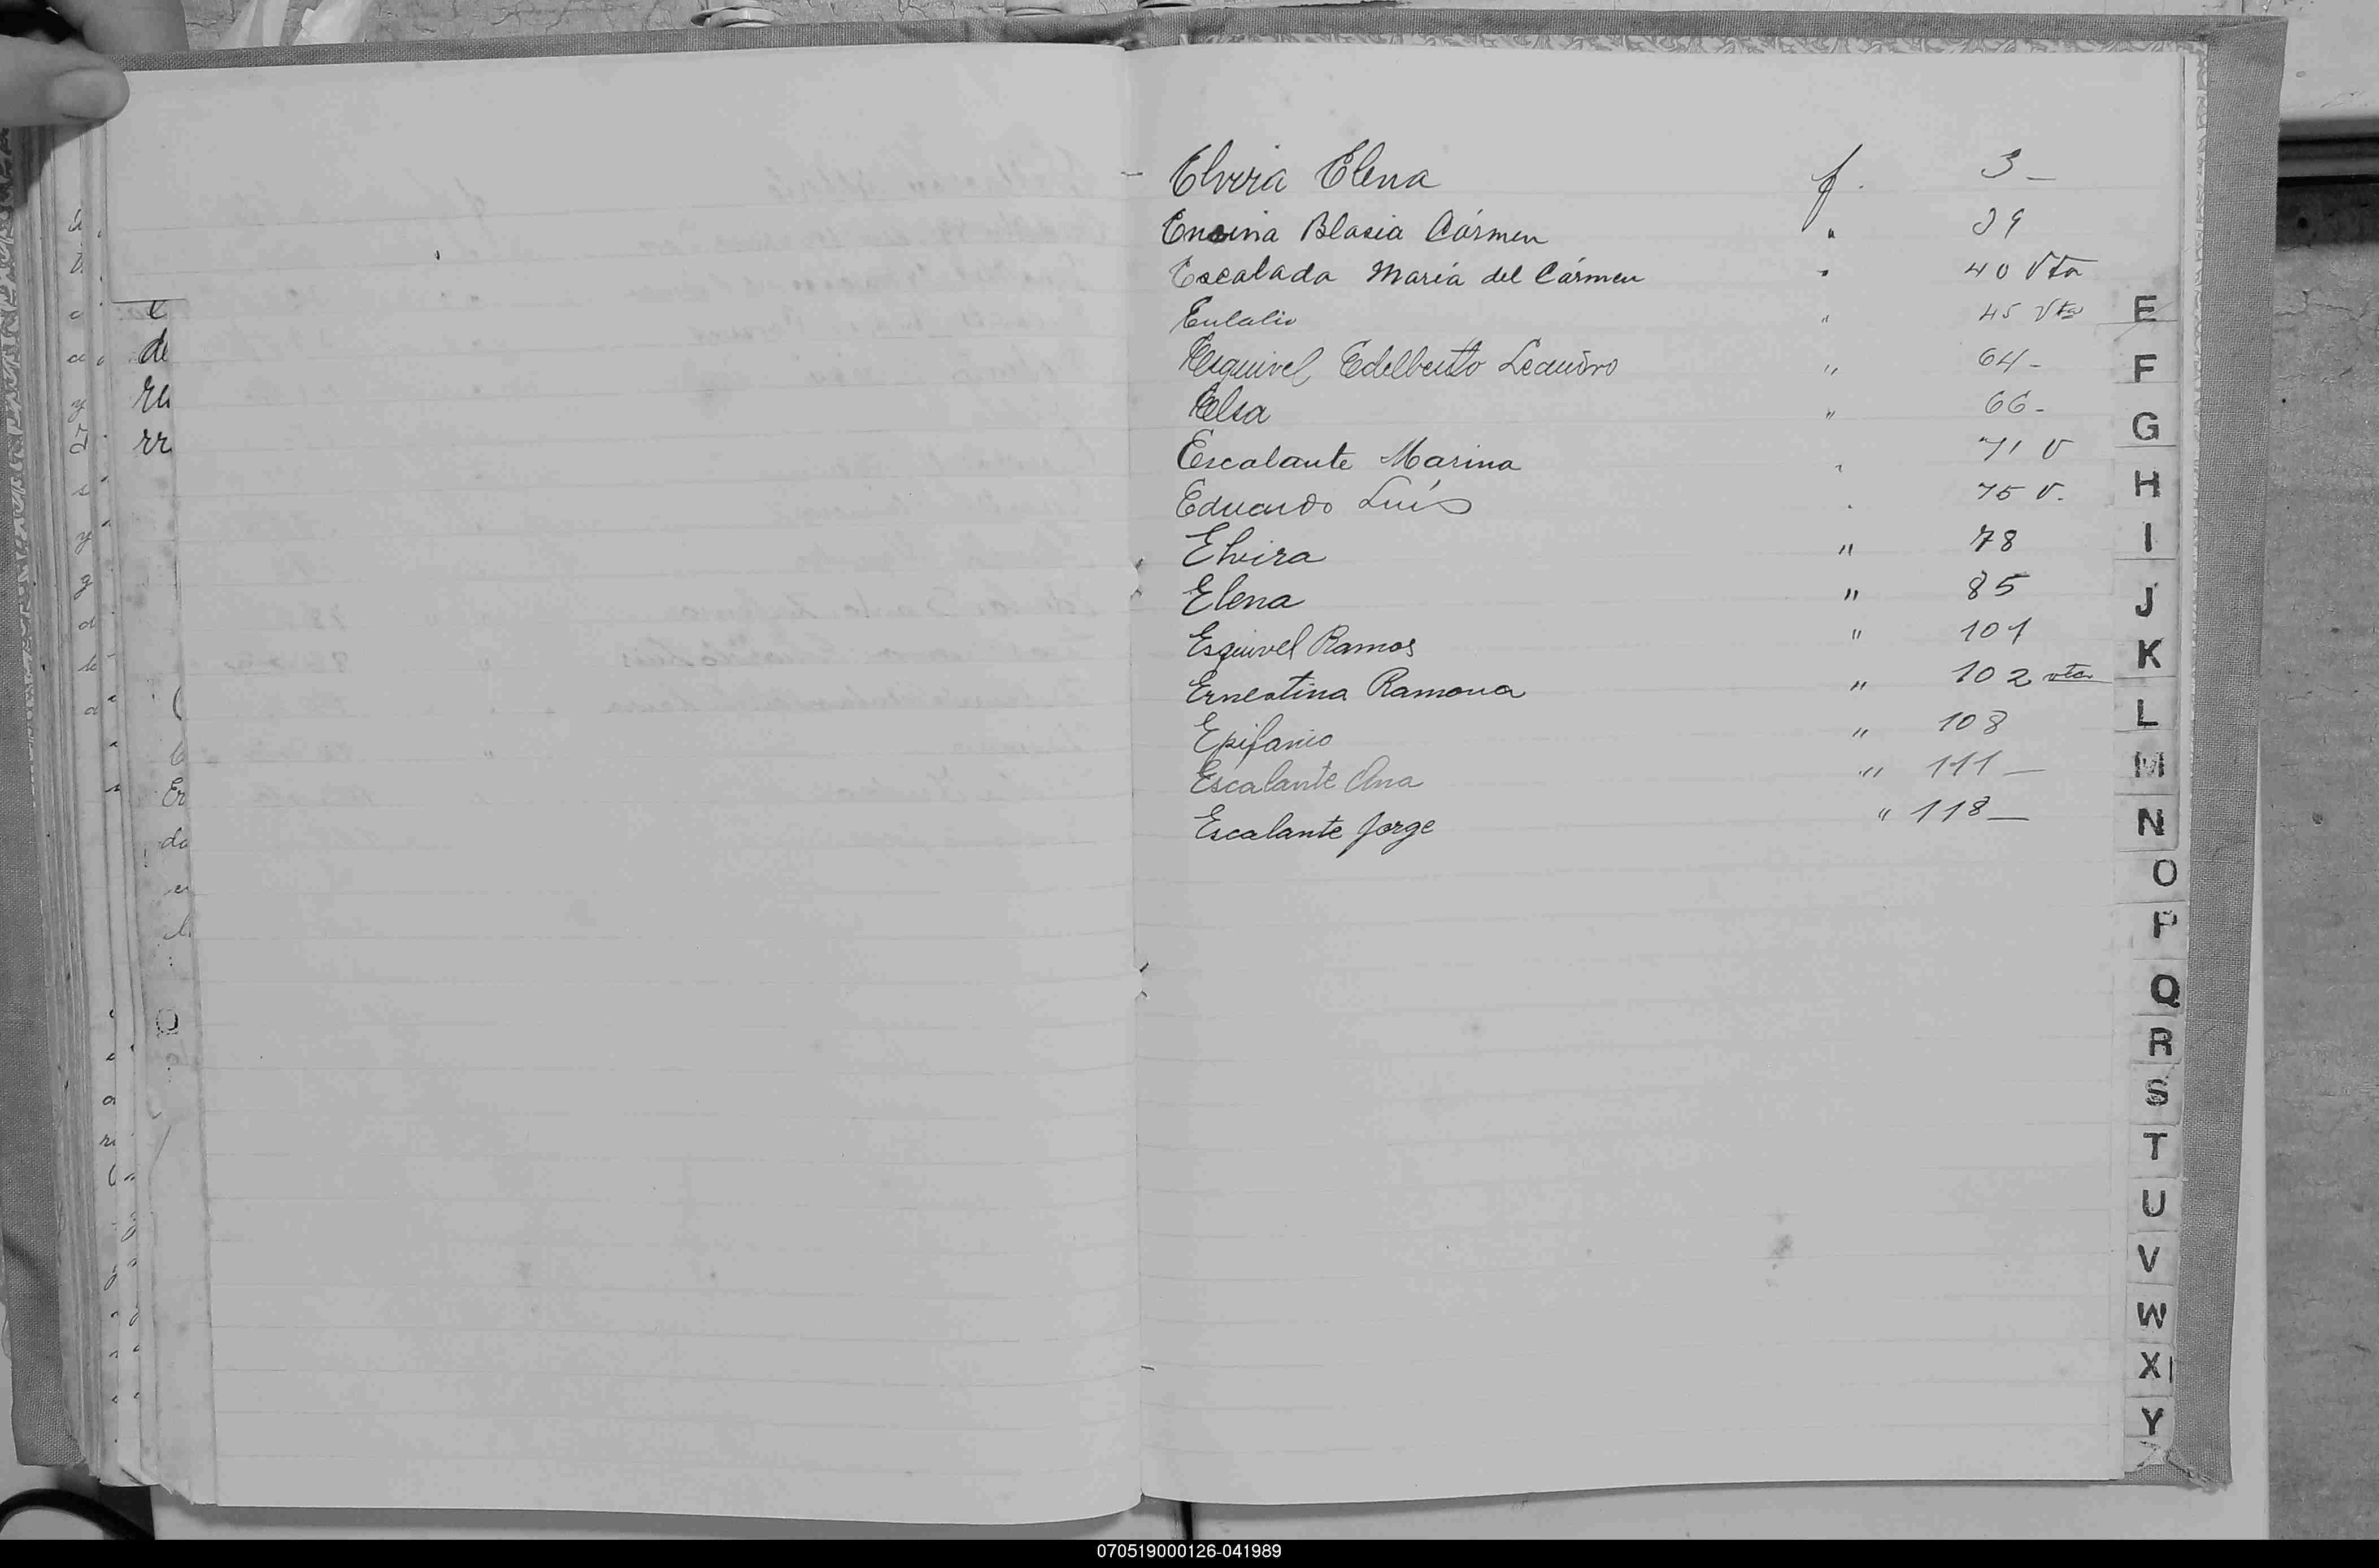 Elvira Elena f. 3 -
Encina Blasia Cármen " 39
Escalada María del Cármen " 40 Vta
Eulalio " 45 Vta
Esquivel Edelberto Leandro " 64 -
Elsa " 66 -
Escalante Marina " 71 V
Eduardo Luís " 75 V.
Elvira " 78
Elena " 85
Esquivel Ramos " 101
Ernestina Ramona " 102 vta
Epifanio " 108
Escalante Ana " 111 -
Escalante Jorge " 118 -
E
F
G
H
I
J
K
L
M
N
O
P
Q
R
S
T
U
V
W
X
Y
070519000126-041989